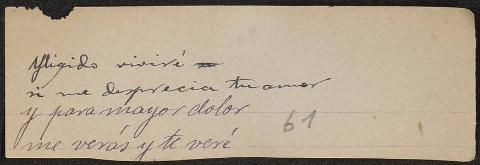 Yligido viviré
si me desprecia tu amor
y para mayor dolor
61
me verás y te veré